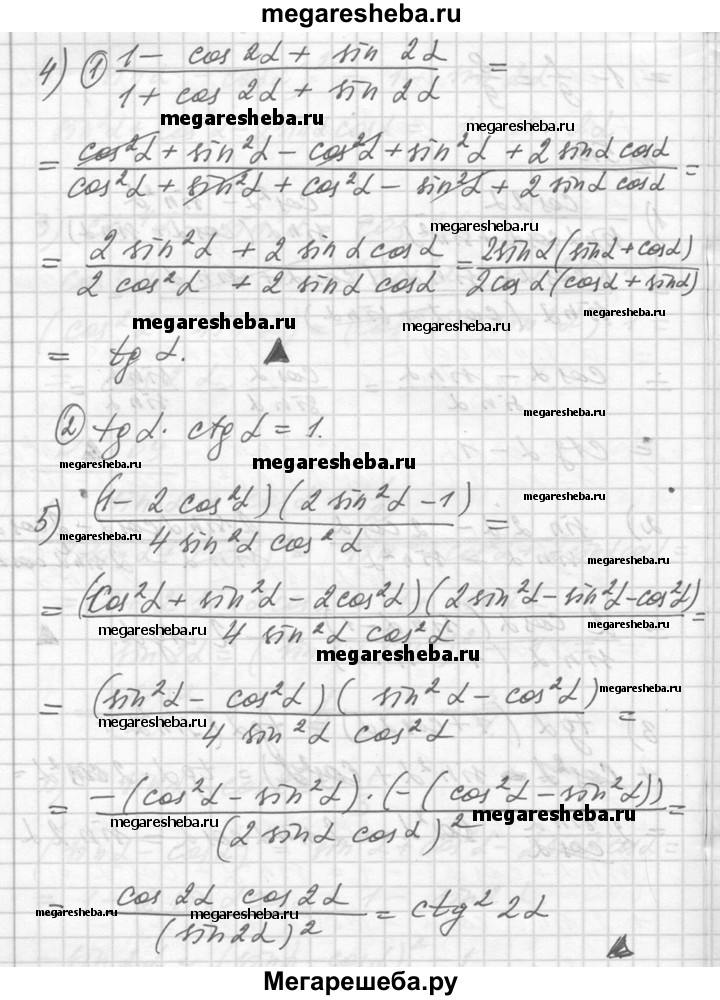 megaresheba.ru
4) ① (1 - cos 2α + sin 2α)/(1 + cos 2α + sin 2α) =
megaresheba.ru megaresheba.ru
= (cos²α + sin²α - cos²α + sin²α + 2 sinα cosα)/(cos²α + sin²α + cos²α - sin²α + 2 sinα cosα) =
megaresheba.ru
= (2 sin²α + 2 sinα cosα)/(2 cos²α + 2 sinα cosα) = 2sinα(sinα + cosα)/2cosα(cosα + sinα)
megaresheba.ru megaresheba.ru
= tg α. ▲
megaresheba.ru
② tg α · ctg α = 1.
megaresheba.ru megaresheba.ru megaresheba.ru
5) (1 - 2 cos²α)(2 sin²α - 1)/4 sin²α cos²α =
megaresheba.ru megaresheba.ru
= (cos²α + sin²α - 2cos²α)(2sin²α - sin²α - cos²α)/4 sin²α cos²α =
megaresheba.ru megaresheba.ru
megaresheba.ru
= (sin²α - cos²α)(sin²α - cos²α)/4 sin²α cos²α =
megaresheba.ru megaresheba.ru
= -(cos²α - sin²α)·(-(cos²α - sin²α))/(2 sinα cosα)² =
megaresheba.ru megaresheba.ru
= cos 2α cos 2α/(sin 2α)² = ctg² 2α
megaresheba.ru megaresheba.ru megaresheba.ru
▲
Мегарешеба.ру